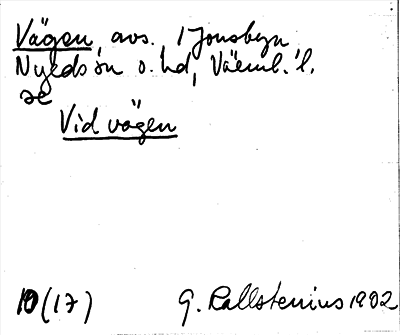 Vägen, avs., i Jonsbyn
Nyeds sn o. hd, Värml. l.
se
Vid vägen
10 (17) G. Kallstenius 1902